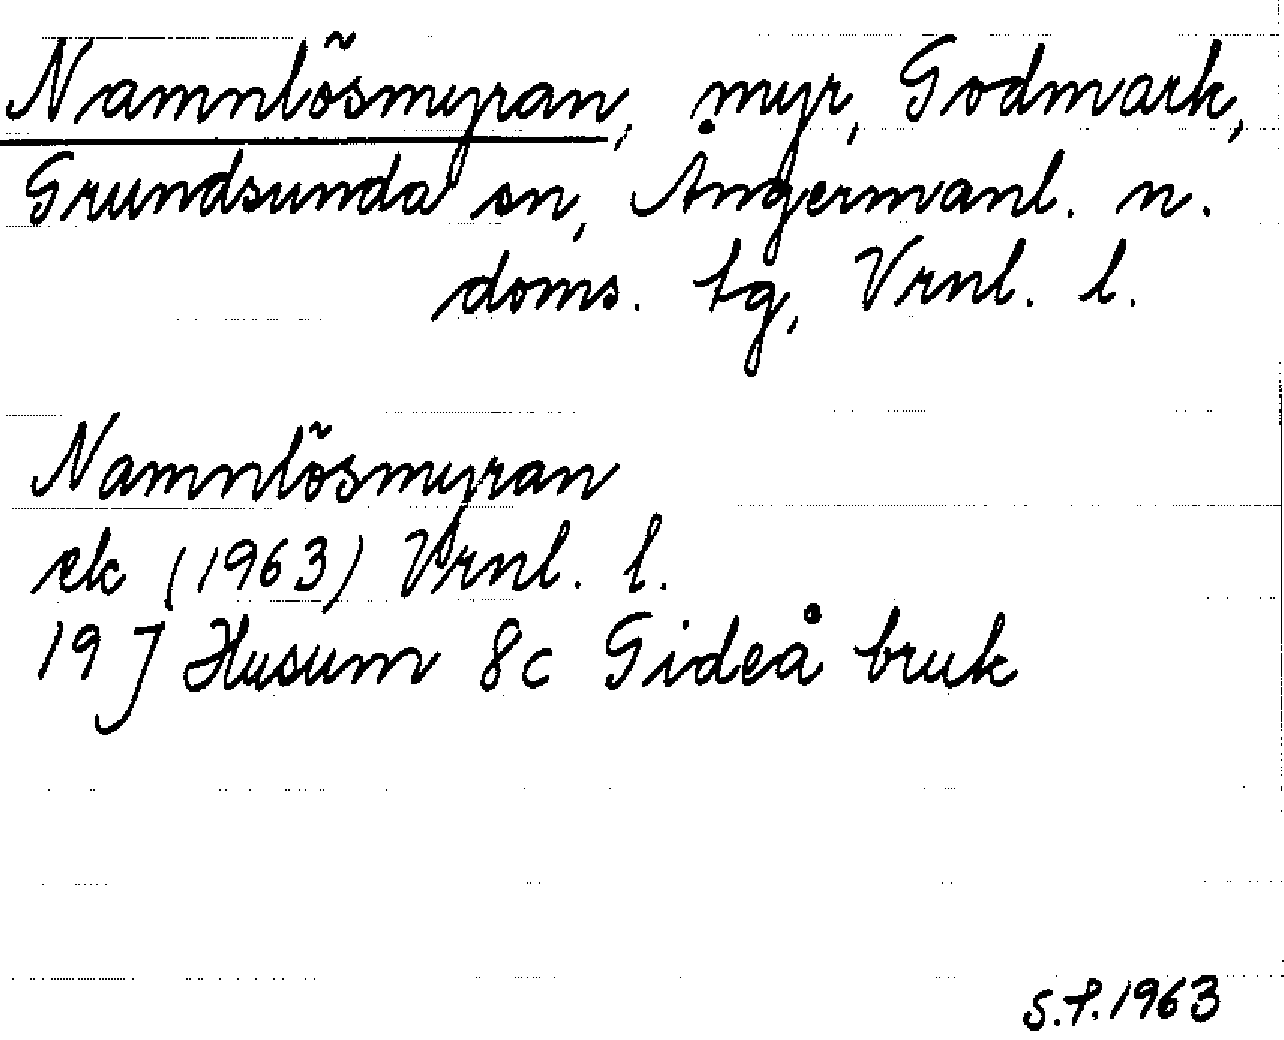 Namnlösmyran, myr, Godmark,
Grundsunda sn, Ångermanl. n.
doms. tg, Vrnl. l.
Namnlösmyran
ek (1963) Vrnl. l.
19 J Husum 8c Gideå bruk
S.P.1963